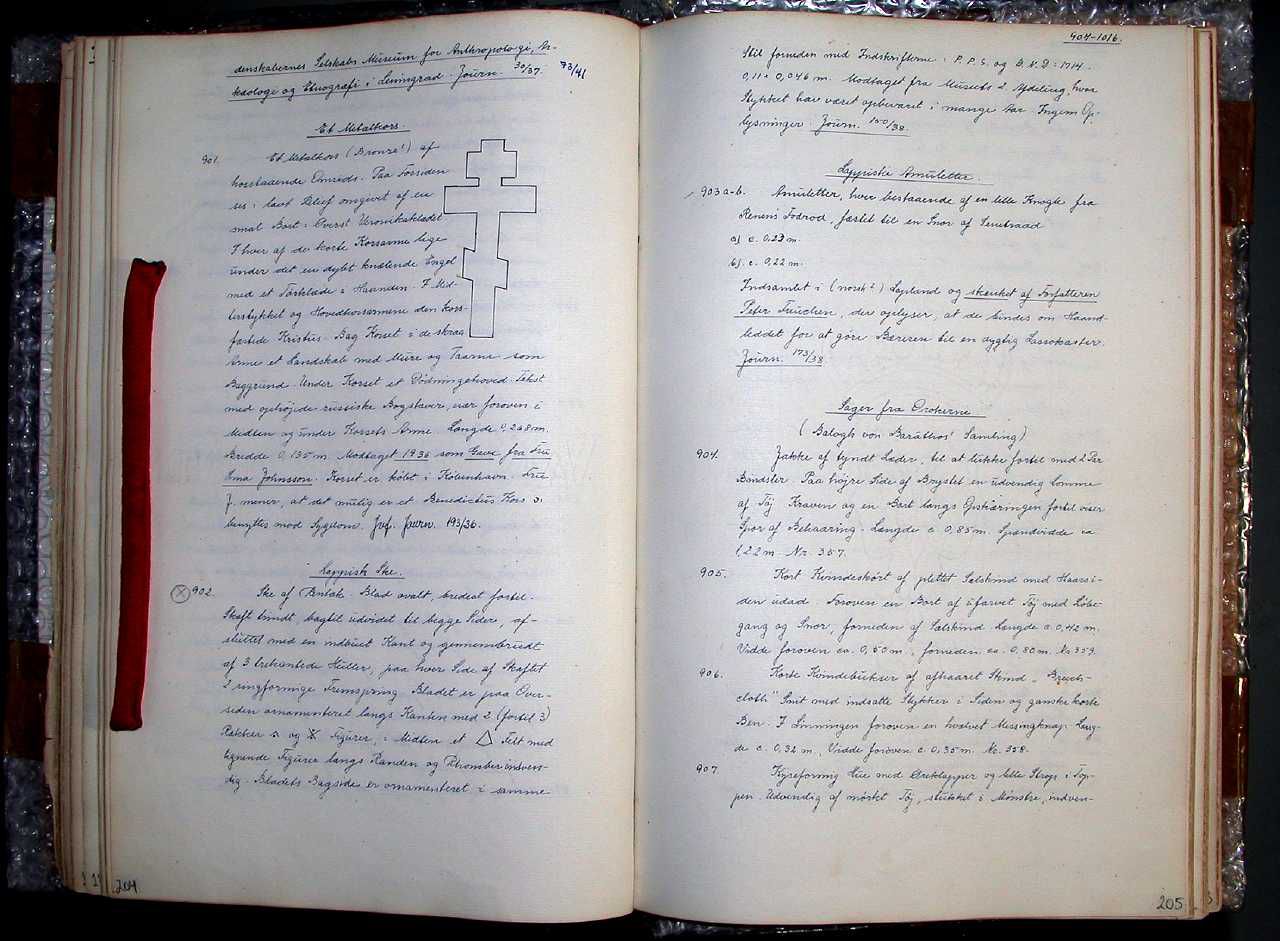 denskabernes Selskabs Museum for Anthropologi, Ar-
kæologi og Etnografi i Leningrad. Journ. 30/37. 73/41
Et Metalkors.
901. Et Metalkors (Bronze?) af
hosstaaende Omrids. Paa Forsiden
ses i lavt Relief omgivet af en
smal Bort: Øverst Veronikaklædet
I hver af de korte Korsarme lige
under det en dybt knælende Engel
med et Tørklæde i Haanden. I Mid-
terstykket og Hovedkorsarmene den kors-
fæstede Kristus. Bag Korset i de skraa
Arme et Landskab med Mure og Taarne som
Baggrund. Under Korset et Dødningehoved. Tekst
med ophøjede russiske Bogstaver, især foroven i
Midten og under Korsets Arme. Længde 0,268 m.
Bredde 0,135 m. Modtaget 1936 som Gave fra Fru
Ema Johnsson. Korset er købt i København. Frue
J. mener, at det mulig er et Benedictus Kors o:
benyttes mod Sygdom. Jvf. Journ. 193/36.
Lappisk Ske.
902. Ske af Rentak. Blad ovalt, bredest fortil.
Skaft tyndt, bagtil udvidet til begge Sider, af-
sluttet med en indbuet Kant og gennembrudt
af 3 trekantede Huller, paa hver Side af Skaftet
2 ringformige Fremspring. Bladet er paa Over-
siden ornamenteret langs Kanten med 2 (fortil 3)
Rækker og Figurer, i Midten et △ Felt med
lignende Figurer langs Randen og Rhomber indven-
dig. Bladets Bagside er ornamenteret i samme
204
904-1016.
Stil forneden med Indskrifterne: P. P. S. og B. N. D: 1714.
0,11 × 0,046 m. Modtaget fra Museets 2. Afdeling, hvor
Stykket har været opbevaret i mange Aar. Ingen Op-
lysninger. Journ. 150/38.
Lappiske Amuletter.
903 a-b. Amuletter, hver bestaaende af en lille Knogle fra
Renens Fodrod, fæstet til en Snor af Senetraad
a) c. 0,23 m.
b). c. 0,22 m.
Indsamlet i (norsk?) Lapland og skænket af Forfatteren
Peter Freuchen, der oplyser, at de bindes om Haand-
leddet for at göre Bæreren til en dygtig Lassokaster.
Journ. 173/38
Sager fra Orokerne
(Balogh von Baráthos' Samling)
904. Jakke af tyndt Læder, til at lukke fortil med 2 Par
Bændsler. Paa højre Side af Brystet en udvendig Lomme
af Töj. Kraven og en Bort langs Opskæringen fortil viser
Spor af Behaaring. Længde c. 0,85 m. Spændvidde ca
1,22 m. Nr. 357.
905. Kort Kvindeskørt af plettet Sælskind med Haarsi-
den udad. Foroven en Bort af ufarvet Töj med Löbe-
gang og Snor, forneden af Sælskind. Længde c. 0,42 m.
Vidde foroven ca. 0,50 m., forneden ca. 0,80 m. Nr 359.
906. Korte Kvindebukser af afhaaret Skind. "Breech-
cloth" Snit med indsatte Stykker i Siden og ganske korte
Ben. I Linningen foroven en hvælvet Messingknap. Læng-
de c. 0,32 m., Vidde foroven c. 0,35 m. Nr. 358.
907. Kyseformig Hue med Øreklapper og lille Strop i Top-
pen. Udvendig af mørkt Töj, stukket i Mönstre, indven-
205